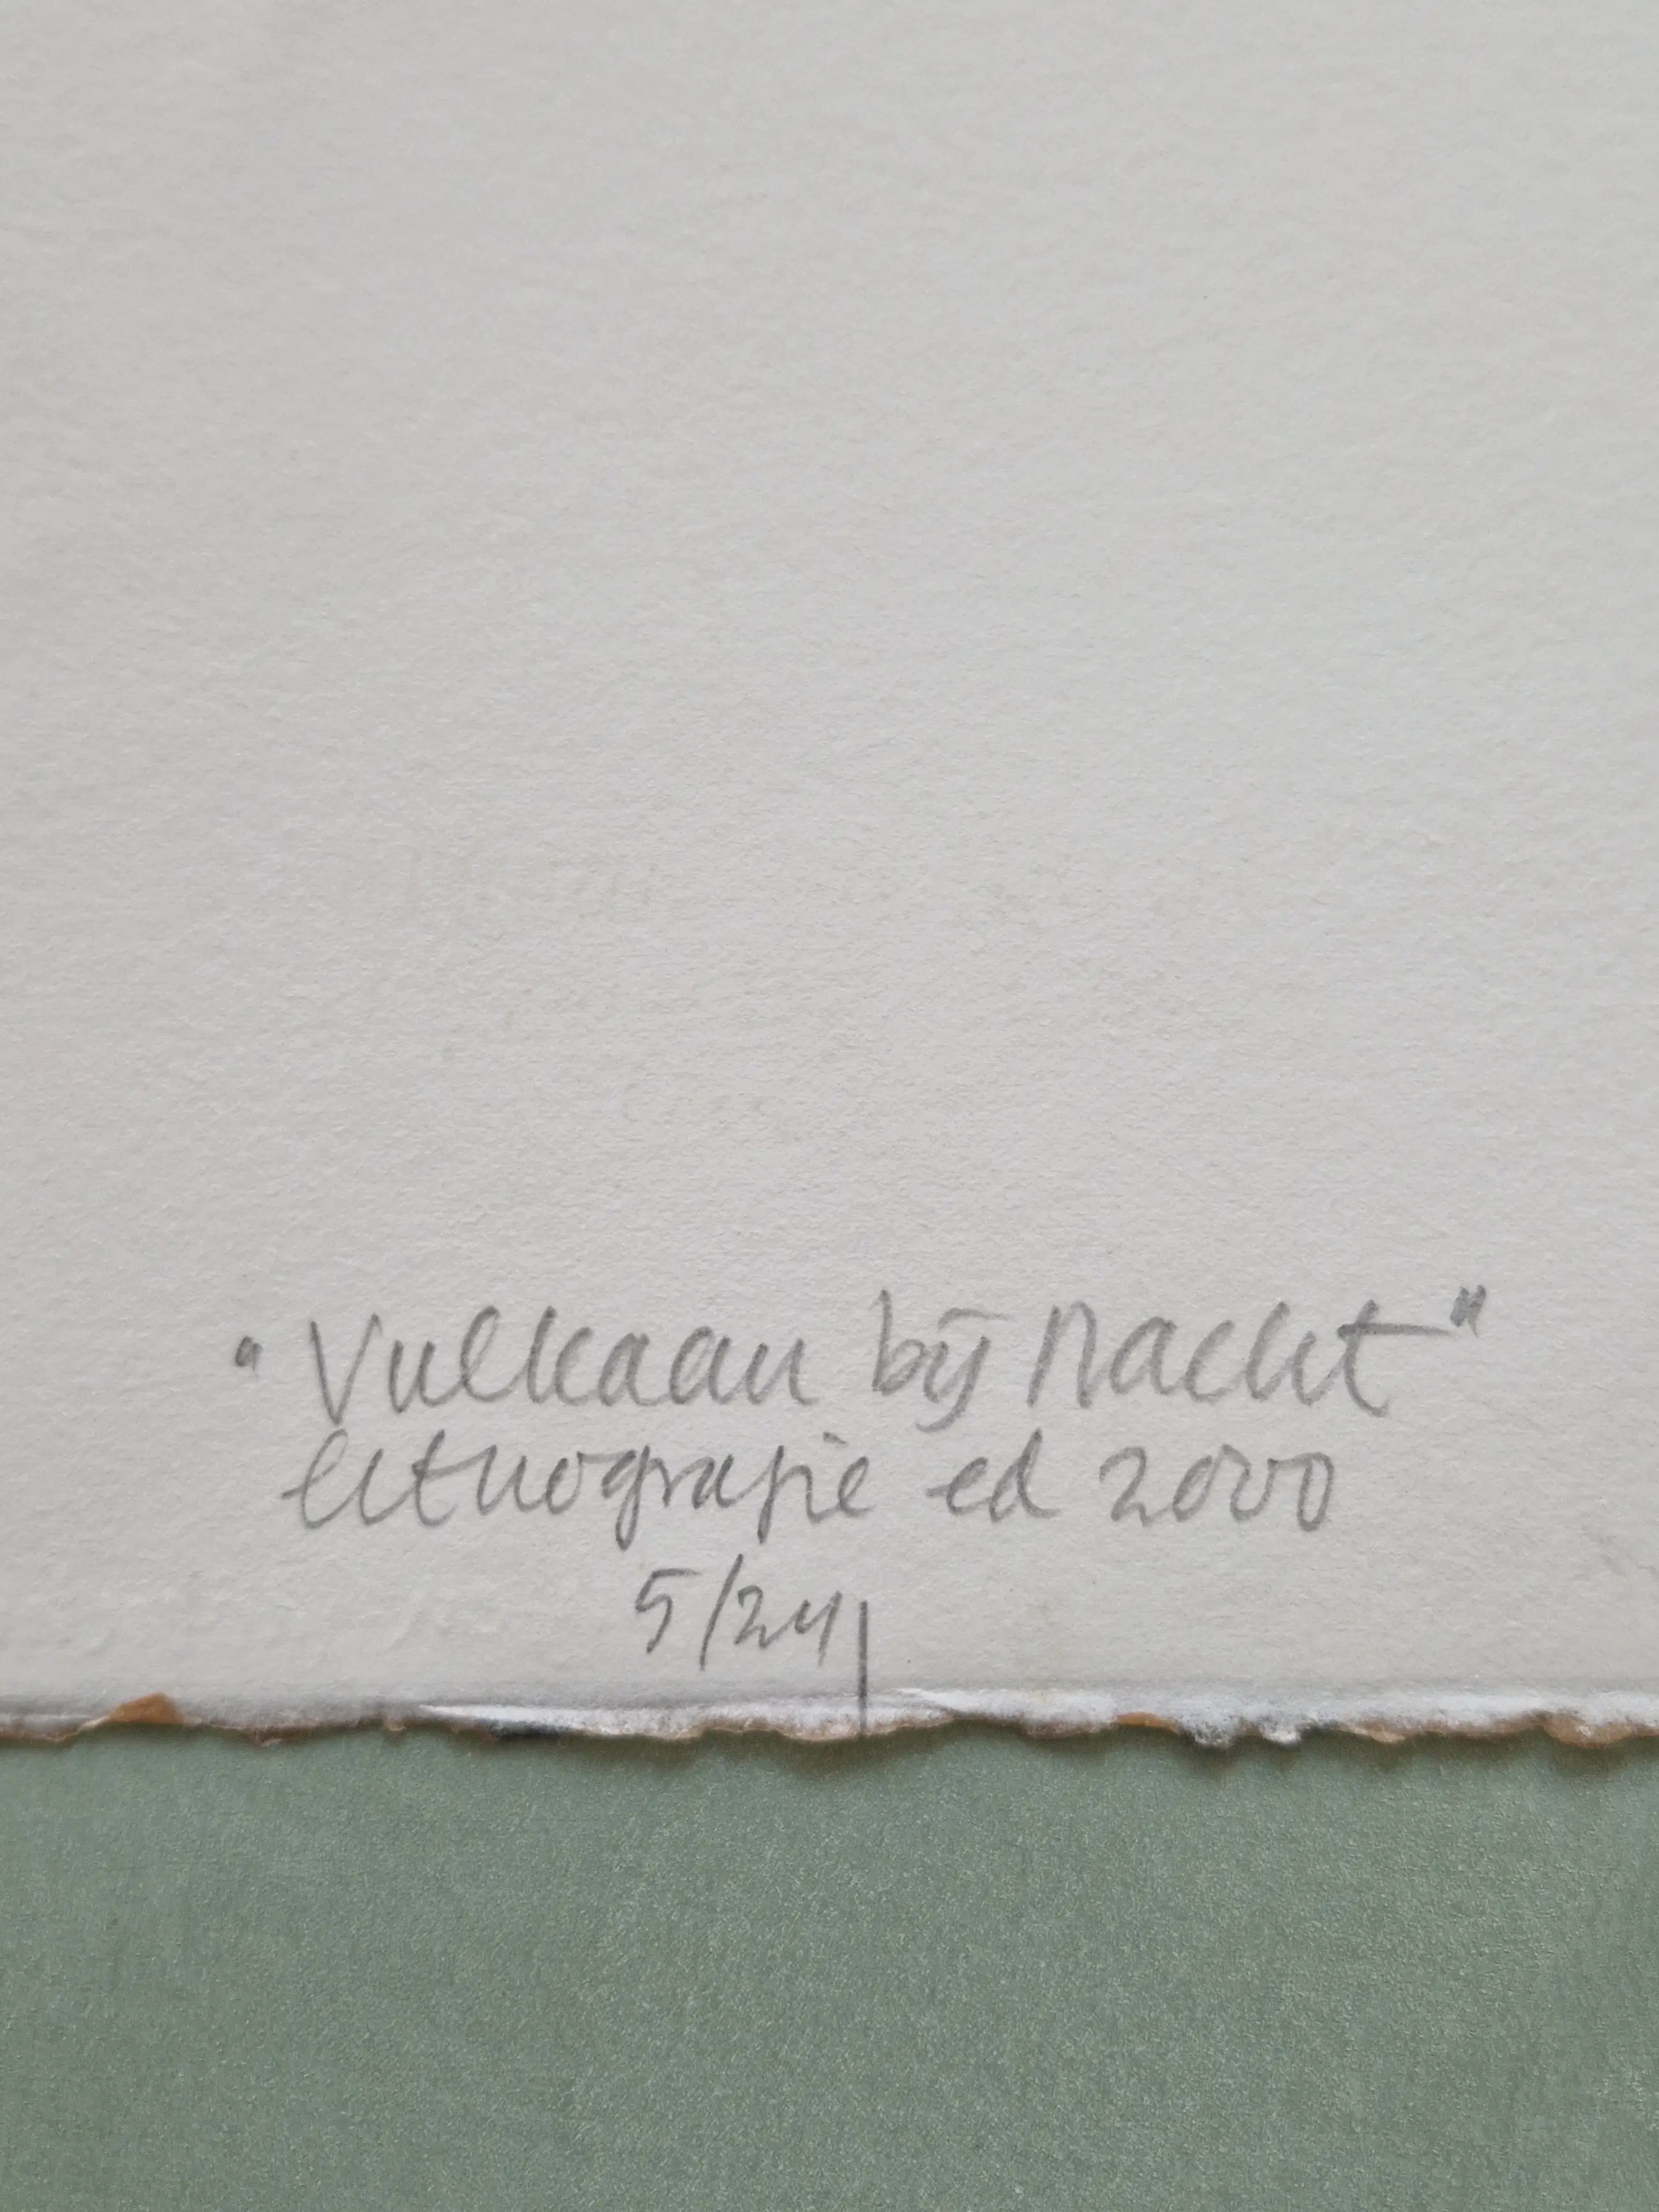 "Vulkaan bij Nacht"
lithografie ed 2000
5/24